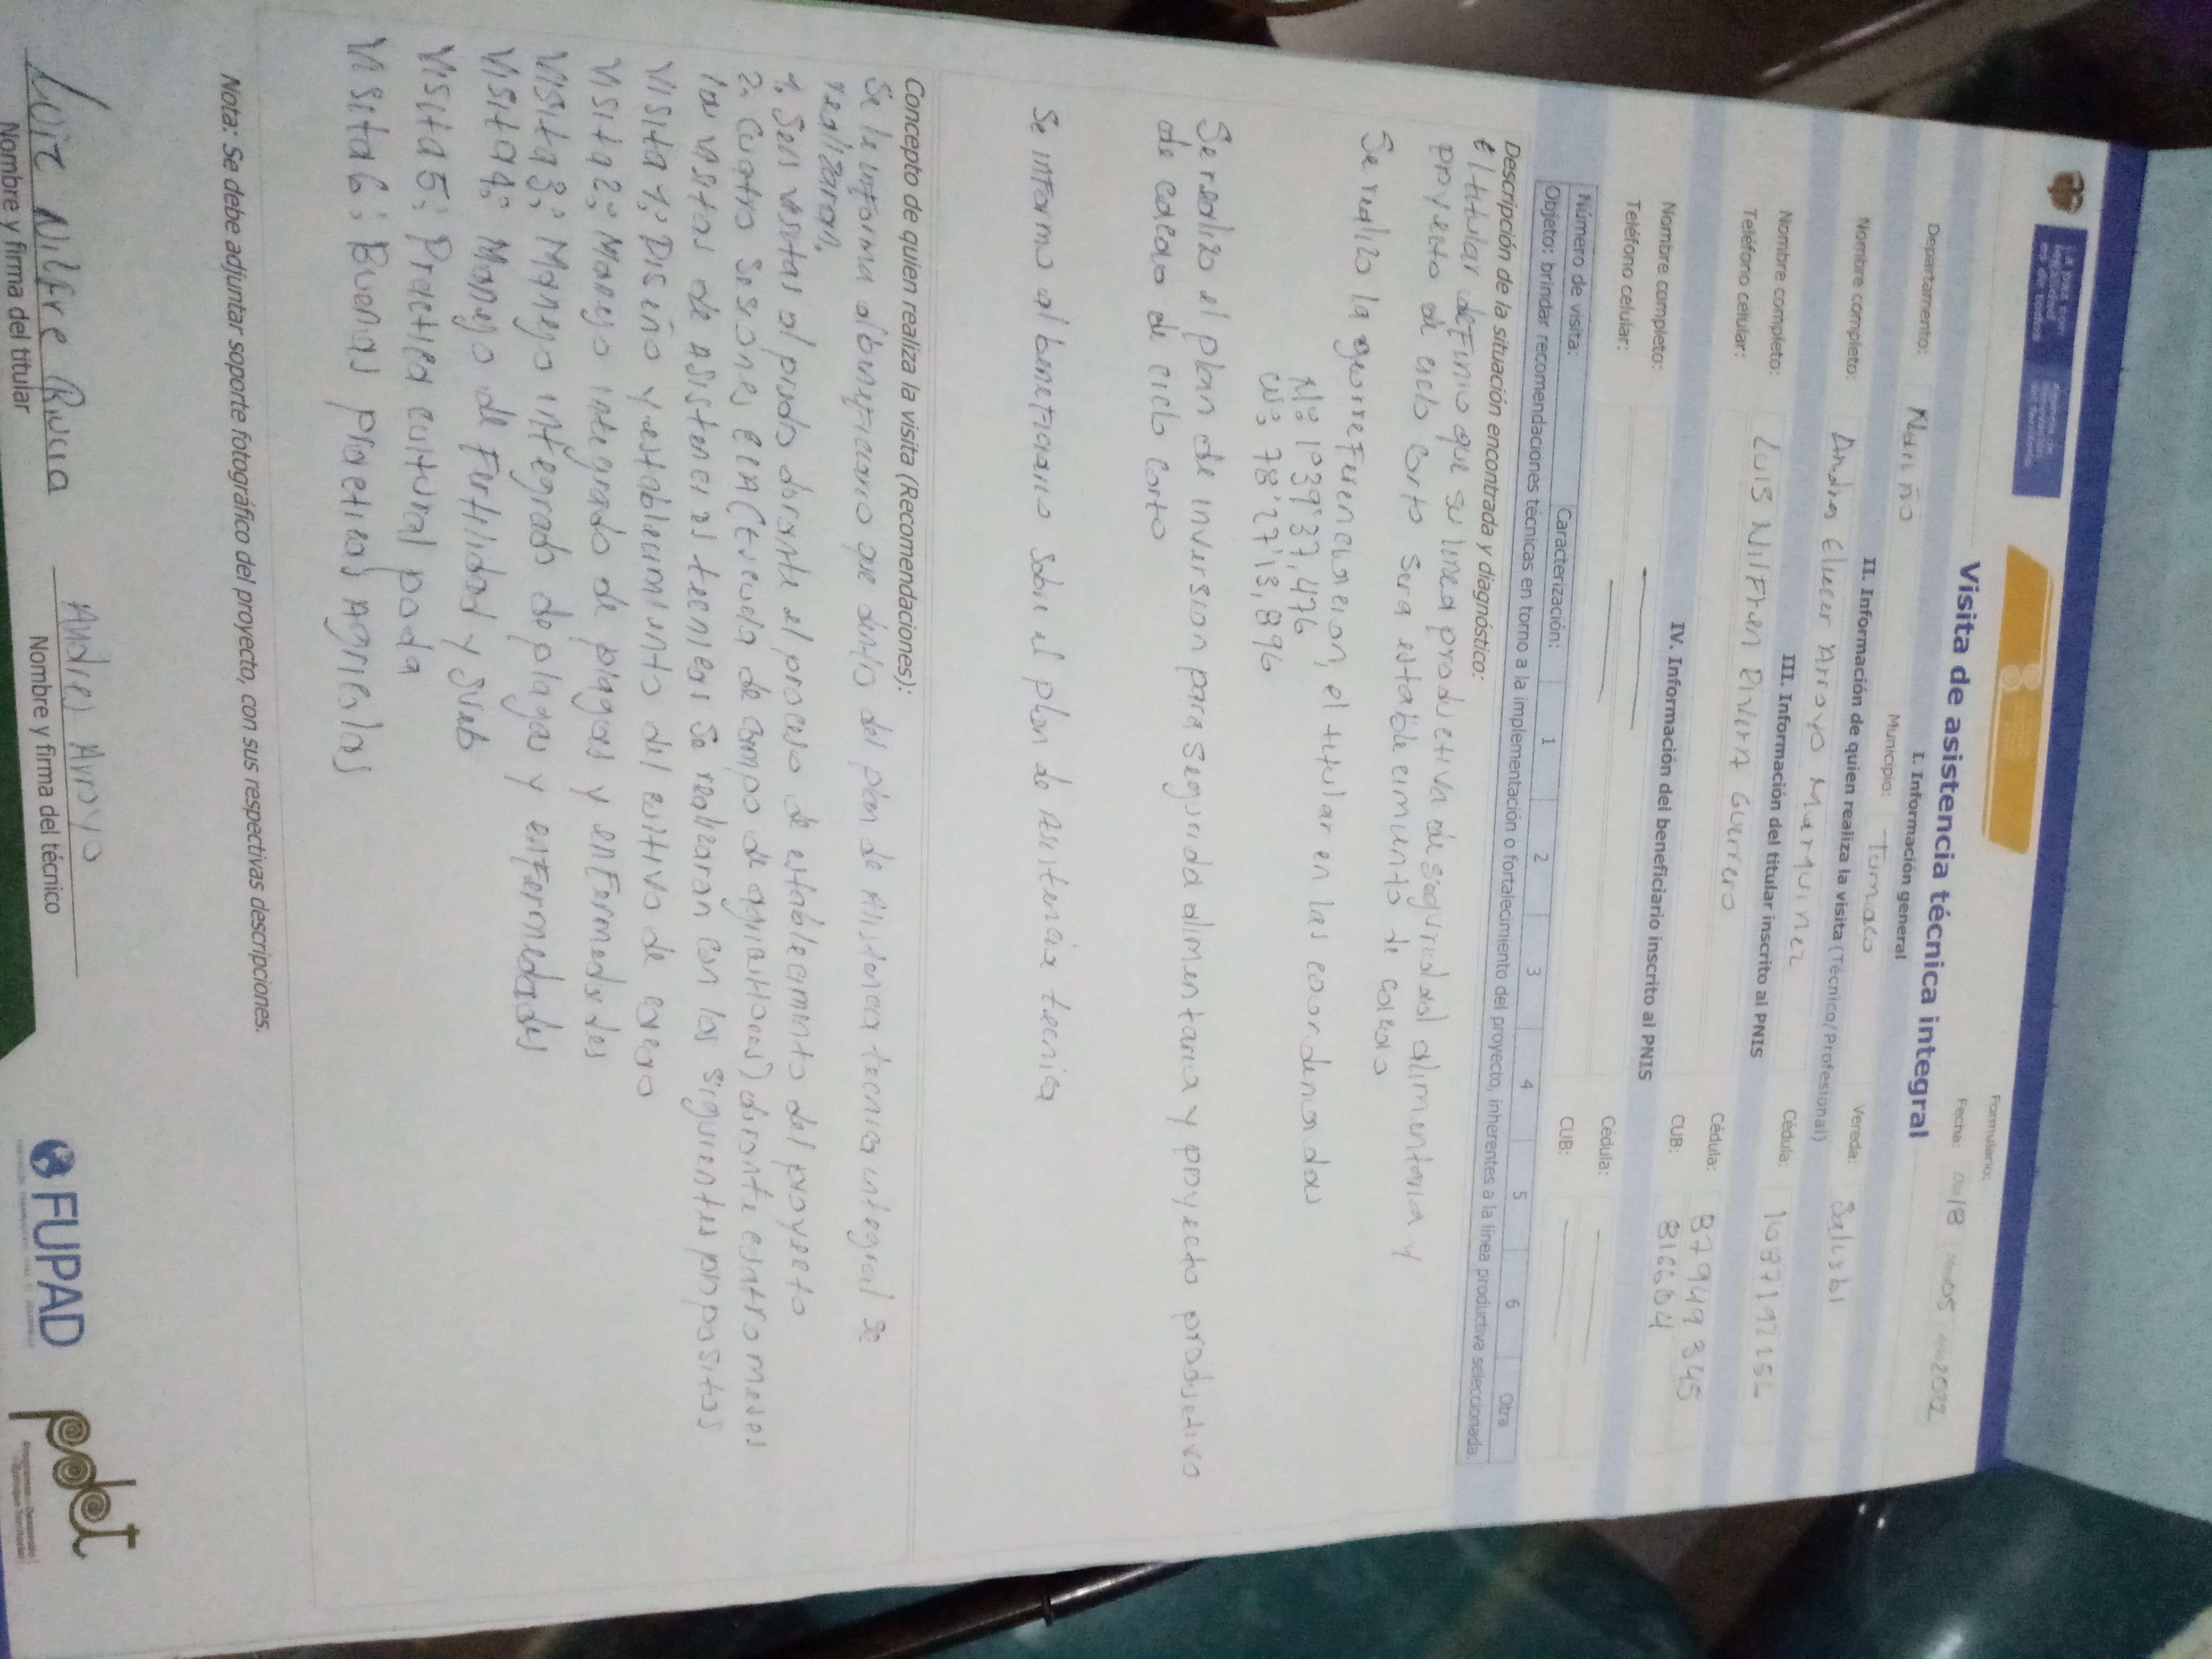 Formulario:
Visita de asistencia técnica integral
Fecha: Día 18 Mes 05 Año 2022
I. Información general
Departamento: Nariño Municipio: Tumaco Vereda: Salisbi
II. Información de quien realiza la visita (Técnico/Profesional)
Nombre completo: Andres Eliecer Arroyo Marquinez Cédula: 1087197156
III. Información del titular inscrito al PNIS
Nombre completo: Luis Nilfren Rivera Guerrero Cédula: 87949345
Teléfono celular: CUB: 8166804
IV. Información del beneficiario inscrito al PNIS
Nombre completo: Cédula:
Teléfono celular: CUB:
Número de visita: Caracterización: 1 2 3 4 5 6 Otra
Objeto: brindar recomendaciones técnicas en torno a la implementación o fortalecimiento del proyecto, inherentes a la línea productiva seleccionada.
Descripción de la situación encontrada y diagnóstico:
El titular definio que su linea productiva de seguridad alimentaria y
proyecto de ciclo corto sera establecimiento de cacao
Se realizo la georreferenciacion, el titular en las coordenadas
N: 1°39'37,476
W: 78°27'13,896
Se realizo el plan de inversion para seguridad alimentaria y proyecto productivo
de cacao de ciclo corto
Se informo al beneficiario sobre el plan de asistencia tecnica
Concepto de quien realiza la visita (Recomendaciones):
Se le informa al beneficiario que dentro del plan de asistencia tecnica integral se
realizaran,
1. Seis visitas al predio durante el proceso de establecimiento del proyecto
2. Cuatro sesiones ECA (Escuela de campo de agricultores) durante cuatro meses
las visitas de asistencias tecnicas se realizaran con los siguientes propositos
Visita 1: Diseño y establecimiento del cultivo de cacao
Visita 2: Manejo integrado de plagas y enfermedades
Visita 3: Manejo integrado de plagas y enfermedades
Visita 4: Manejo de fertilidad y suelo
Visita 5: Practica cultural poda
Visita 6: Buenas practicas agricolas
Nota: Se debe adjuntar soporte fotográfico del proyecto, con sus respectivas descripciones.
Andres Arroyo
Nombre y firma del titular Nombre y firma del técnico
FUPAD pdet